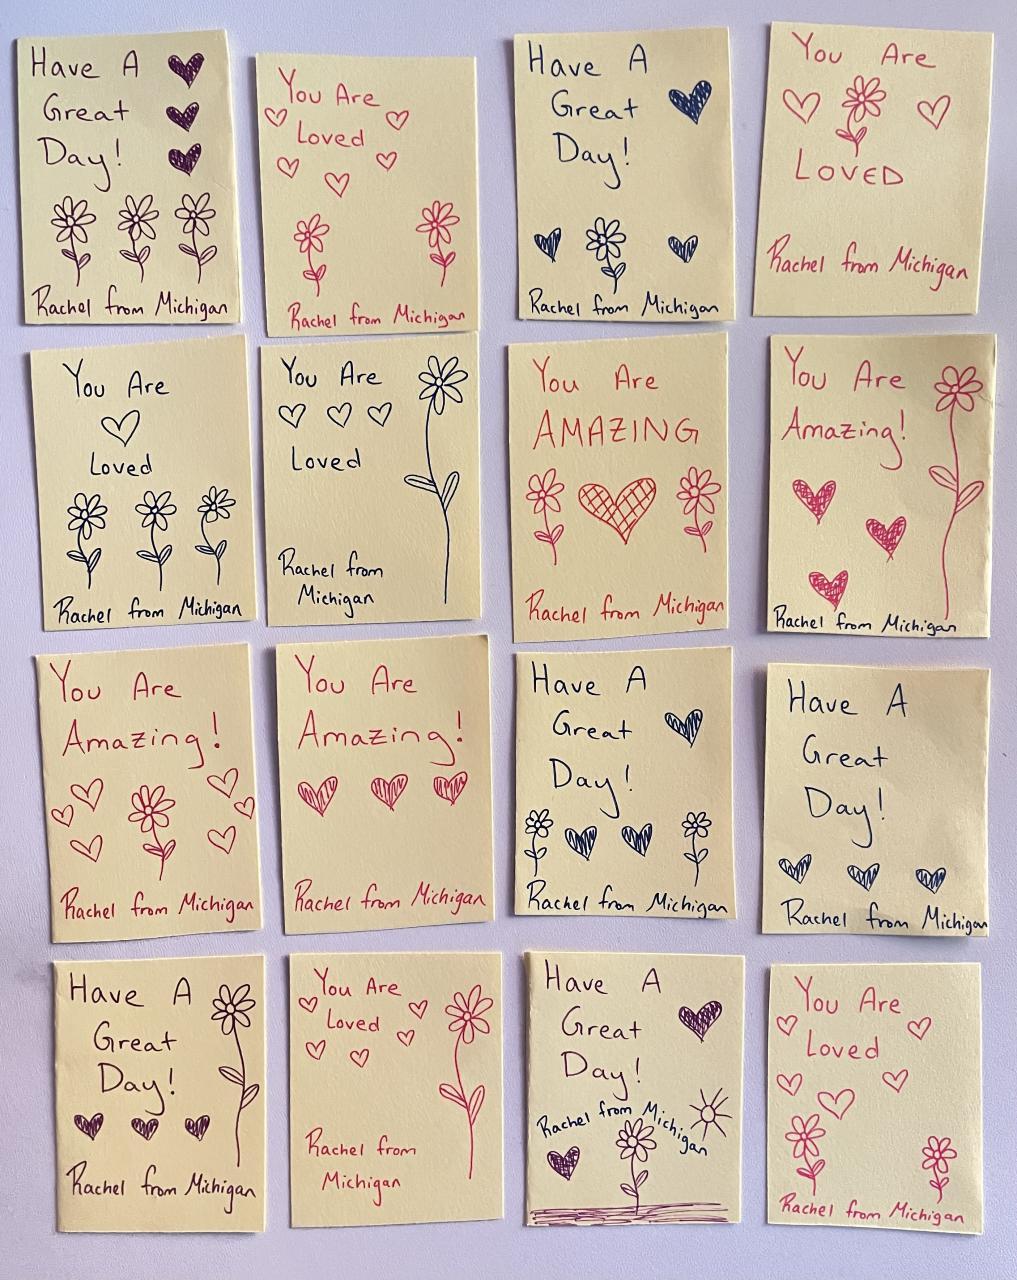 Have A
Great
Day!
Rachel from Michigan
You Are
Loved
Rachel from Michigan
Have A
Great
Day!
Rachel from Michigan
You Are
LOVED
Rachel from Michigan
You Are
Loved
Rachel from Michigan
You Are
Loved
Rachel from
Michigan
You Are
AMAZING
Rachel from Michigan
You Are
Amazing!
Rachel from Michigan
You Are
Amazing!
Rachel from Michigan
You Are
Amazing!
Rachel from Michigan
Have A
Great
Day!
Rachel from Michigan
Have A
Great
Day!
Rachel from Michigan
Have A
Great
Day!
Rachel from Michigan
You Are
Loved
Rachel from
Michigan
Have A
Great
Day!
Rachel from Michigan
You Are
Loved
Rachel from Michigan